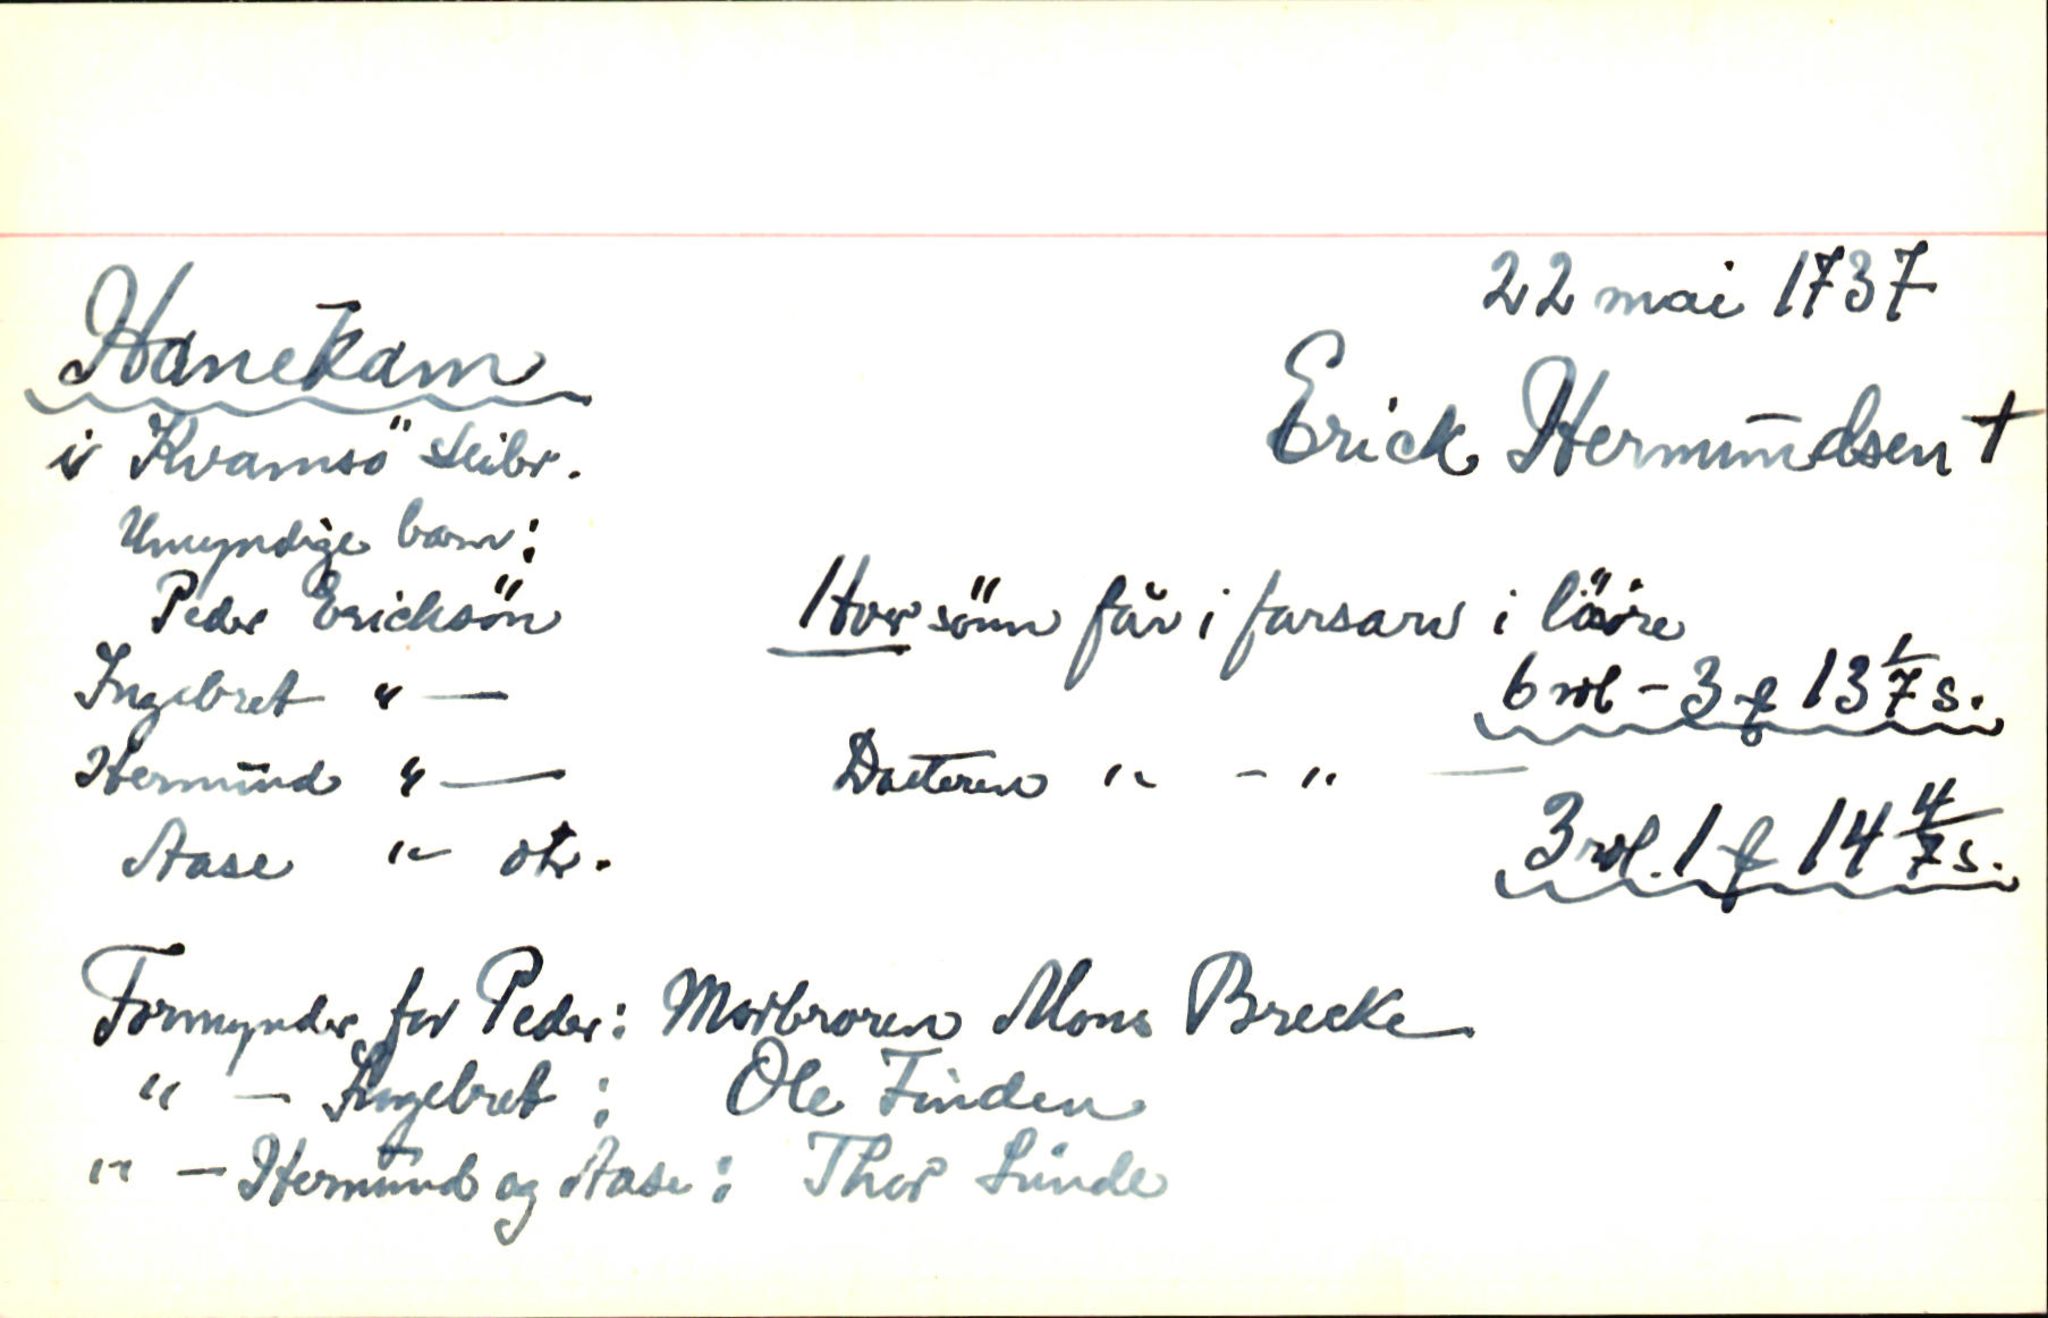 22 mai 1737
Hanekam
Erick Hermundsen †
i Kvamsö skibr.
Umyndige barn:
Peder Ericksön
Hver sönn får i farsarv i lösöre
Ingebret " —
6 rdl - 3 ₰ 13 1/7 s.
Hermund " —
Datteren " - " —
3 rdl. 1 ₰ 14 4/7 s.
Aase " dtr.
Formynder for Peder: Morbroren Mons Brecke
" — Ingebret : Ole Finden
" — Hermund og Aase : Thor Lunde